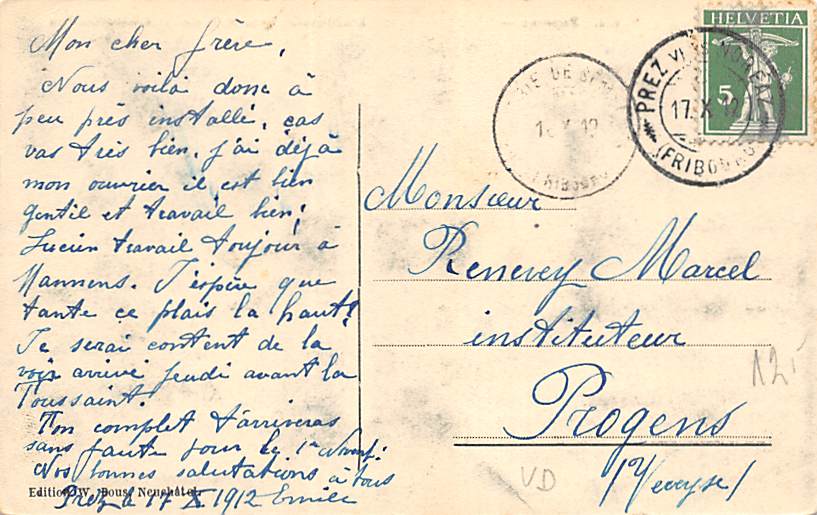 Mon cher frère,
Nous voilà donc à
peu près installé, ças
vas très bien, j'ai déjà
mon ouvrier il est bien
gentil et travail bien;
Lucien travail toujour à
Mannens. J'espère que
tante ce plais la haut!
Je serai content de la
voir arrivé jeudi avant la
Toussaint.
Ton complet t'arriveras
sans faute pour le 1er
Nos bonnes salutations à tous
Prez à 17 X 1912 Emile
Edition W. Bous, Neuchâtel
HELVETIA
5
PREZ VERS NORÉAZ
17. X. 12
(FRIBOURG)
Monsieur
Renevey Marcel
instituteur
Progens
(Veveyse)
12
VD